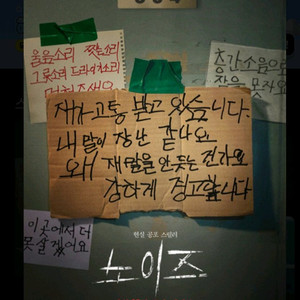 울음소리 찢는소리
그릇소리 드라이소리
멈춰주세요
층간소음으로
잠을 못자요
제가 고통 받고 있습니다.
내 말이 장난 같나요
왜 제 말을 안 듣는 건가요
강하게 경고합니다
이 곳에서 더
못 살겠어요
현실 공포 스릴러
노이즈